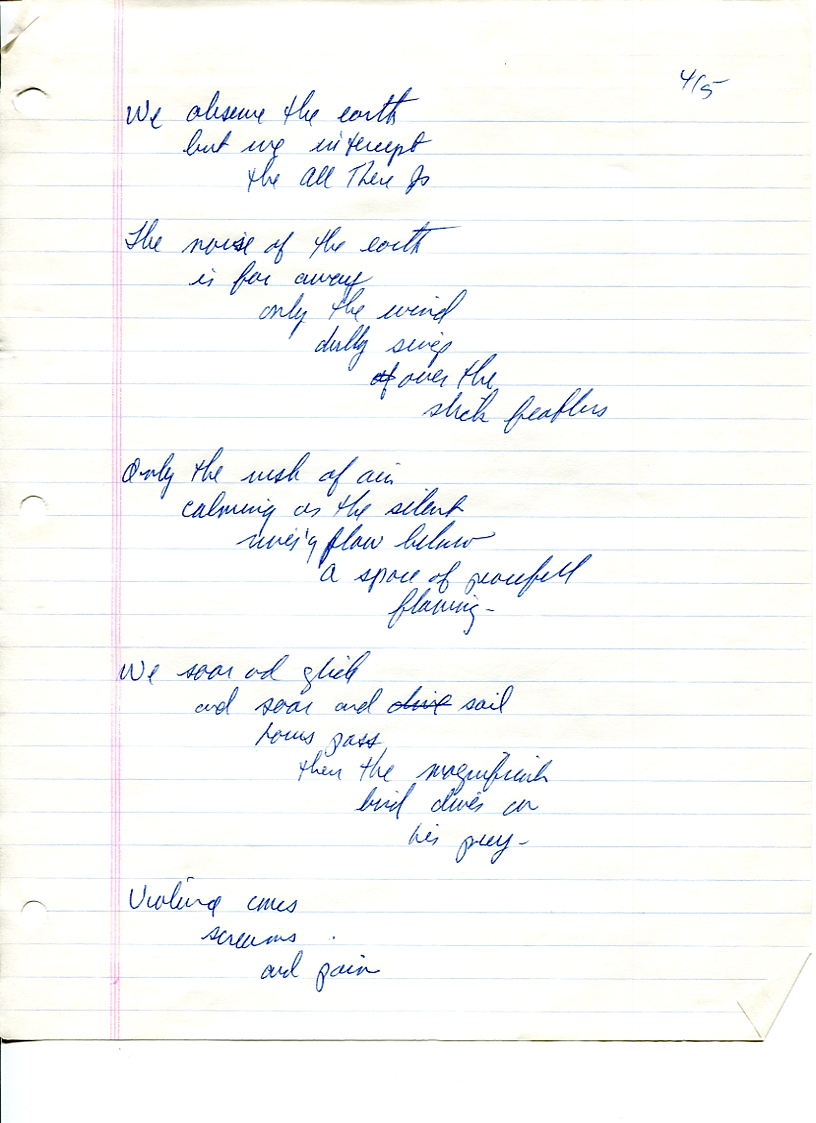 4/5
We observe the earth
but we intercept
the All There Is
The noise of the earth
is far away
only the wind
dully sings
of over the
slick feathers
Only the rush of air
calming as the silent
flow below
a space of peacefull
We soar and glide
and soar and dive sail
hours pass
then the magnificent
bird dives on
his prey-
Violence comes
screams
and pain